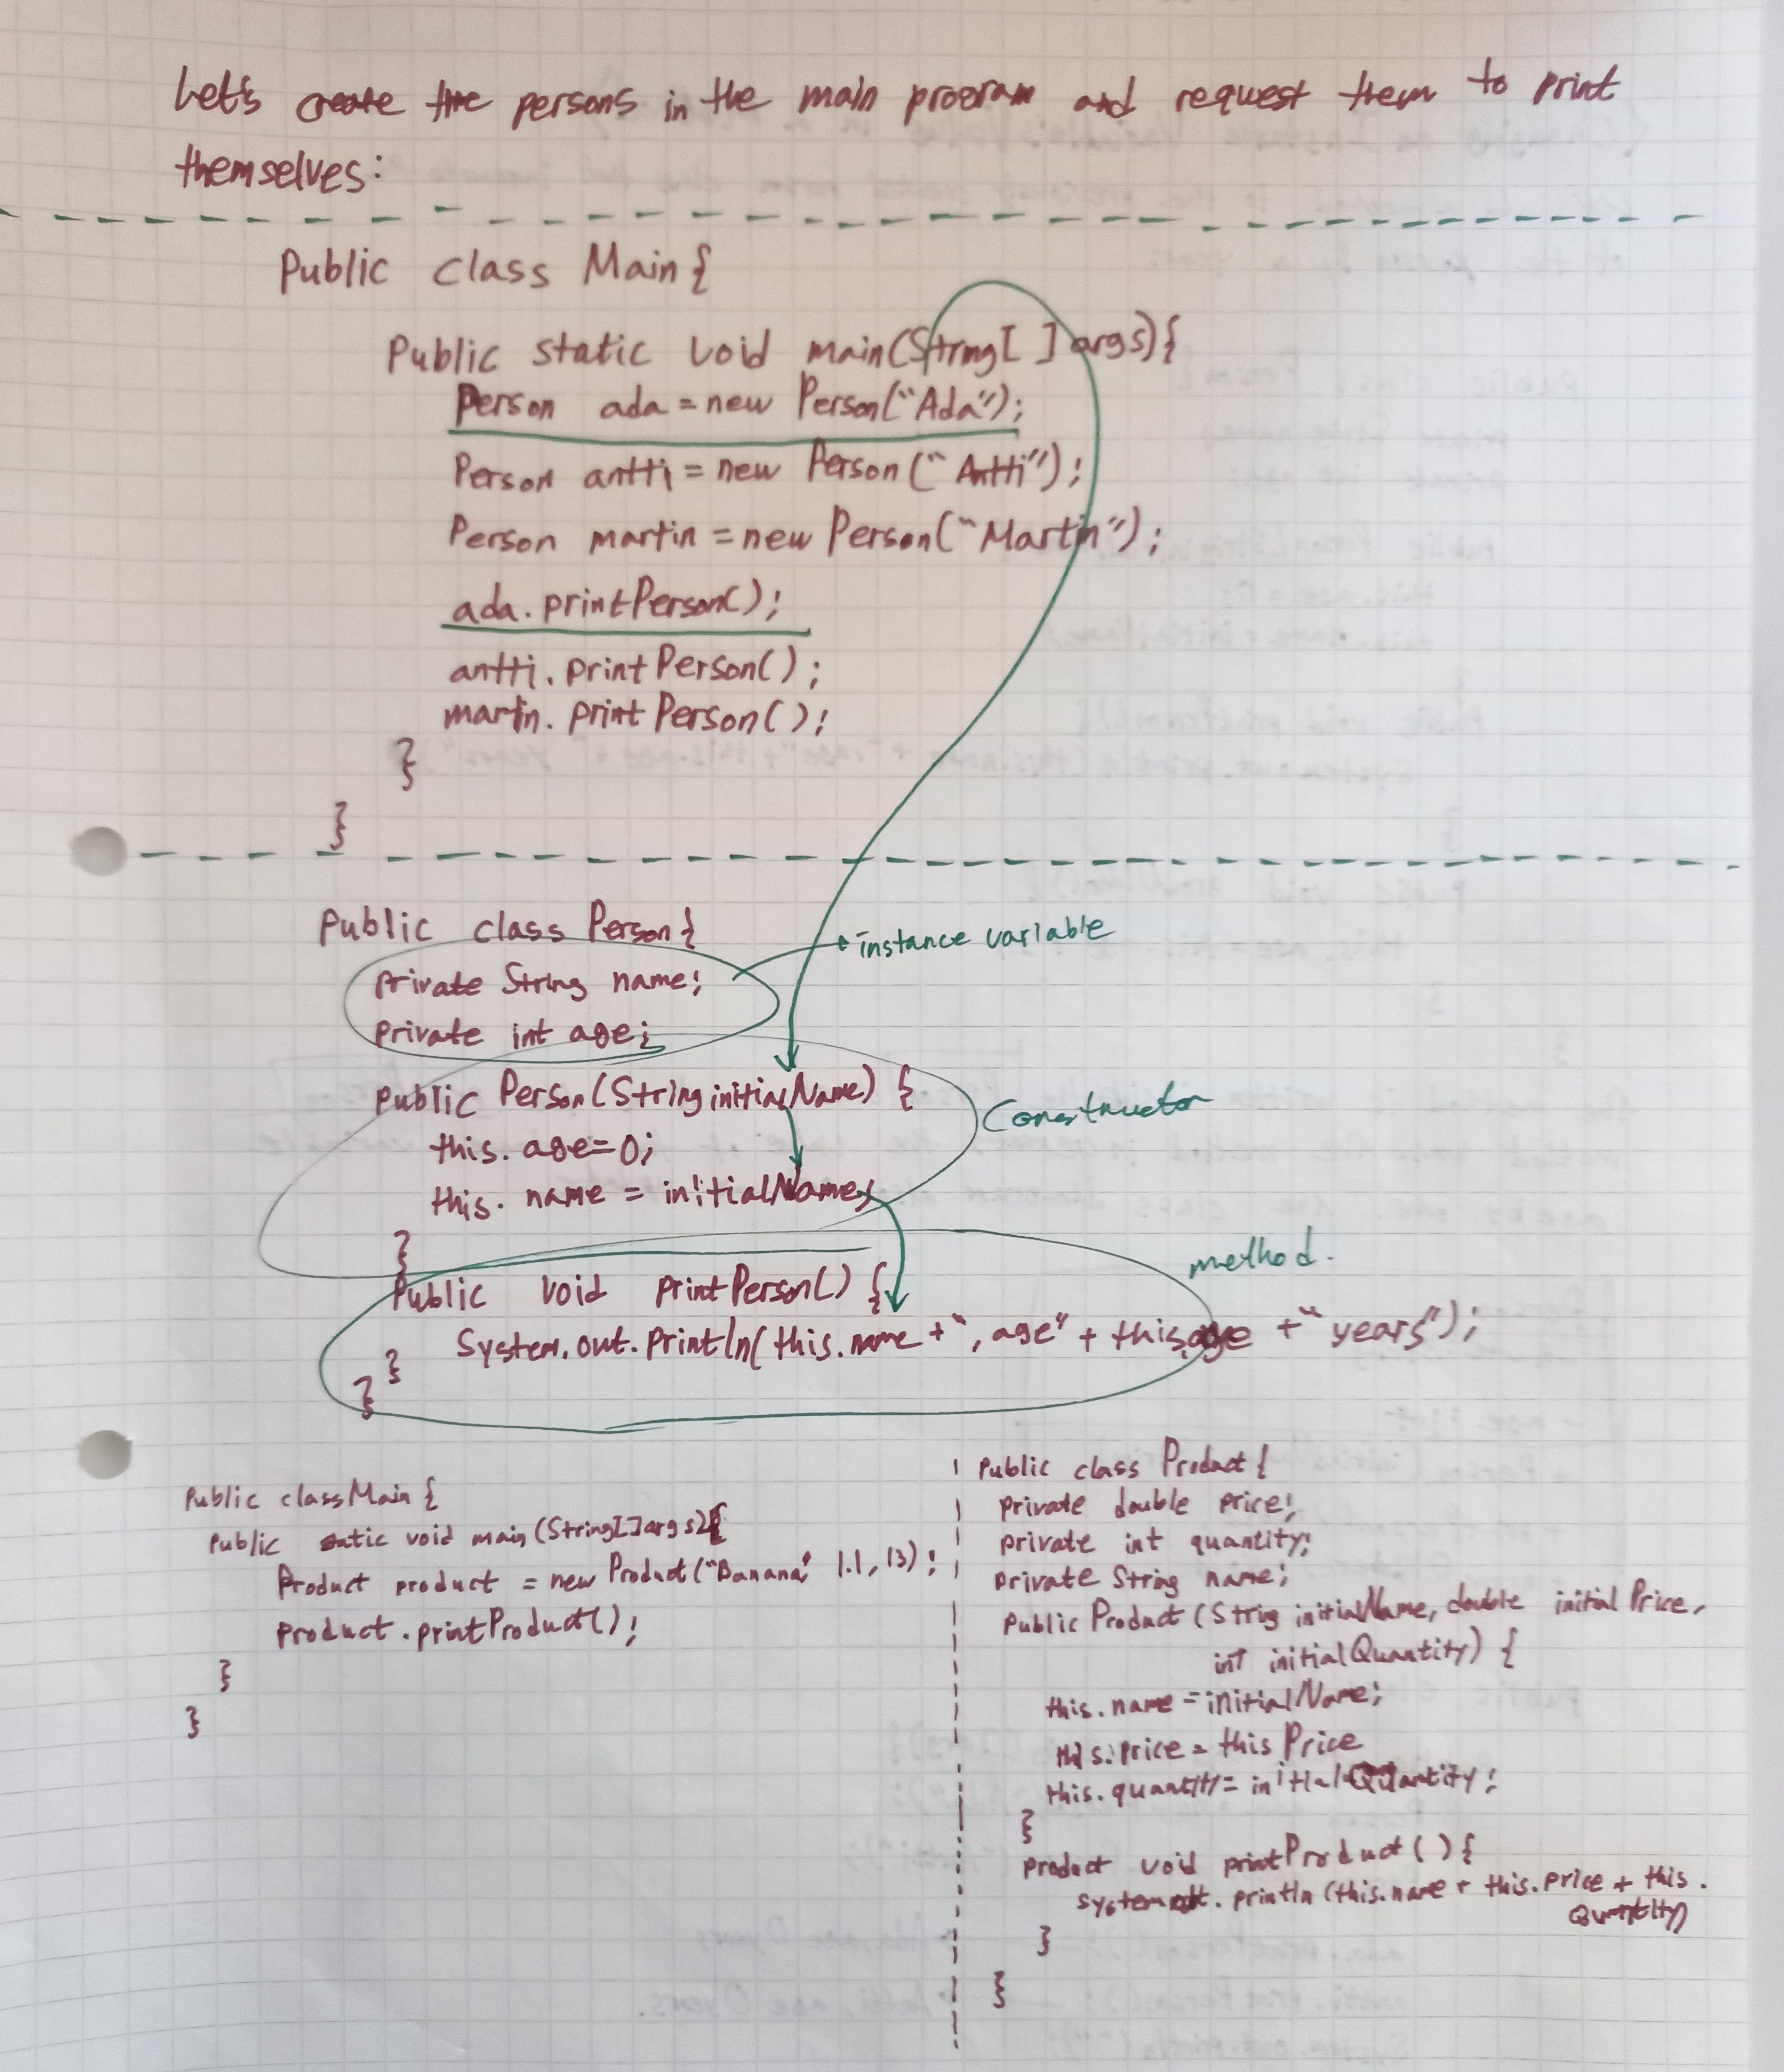 Let's create the persons in the main program and request them to print
themselves:
Public class Main{
Public static void main(String[ ] args){
Person ada = new Person("Ada");
Person antti = new Person("Antti");
Person martin = new Person("Martin");
ada.printPerson();
antti.printPerson();
martin.printPerson();
}
}
Public class Person{
private String name;
private int age;
instance variable
Public Person(String initialName) {
this.age=0;
this.name = initialName;
}
Constructor
Public void printPerson() {
System.out.println(this.name +", age" + this.age +"years");
}
}
method.
Public class Main{
Public static void main(String[] args){
Product product = new Product("Banana", 1.1, 13);
Product.printProduct();
}
}
Public class Product{
private double price;
private int quantity;
private String name;
Public Product (String initialName, double initialPrice,
int initialQuantity) {
this.name = initialName;
this.price = this Price
this.quantity = initialQuantity;
}
Product void printProduct(){
system.out.println(this.name + this.price + this.
Quantity)
}
}